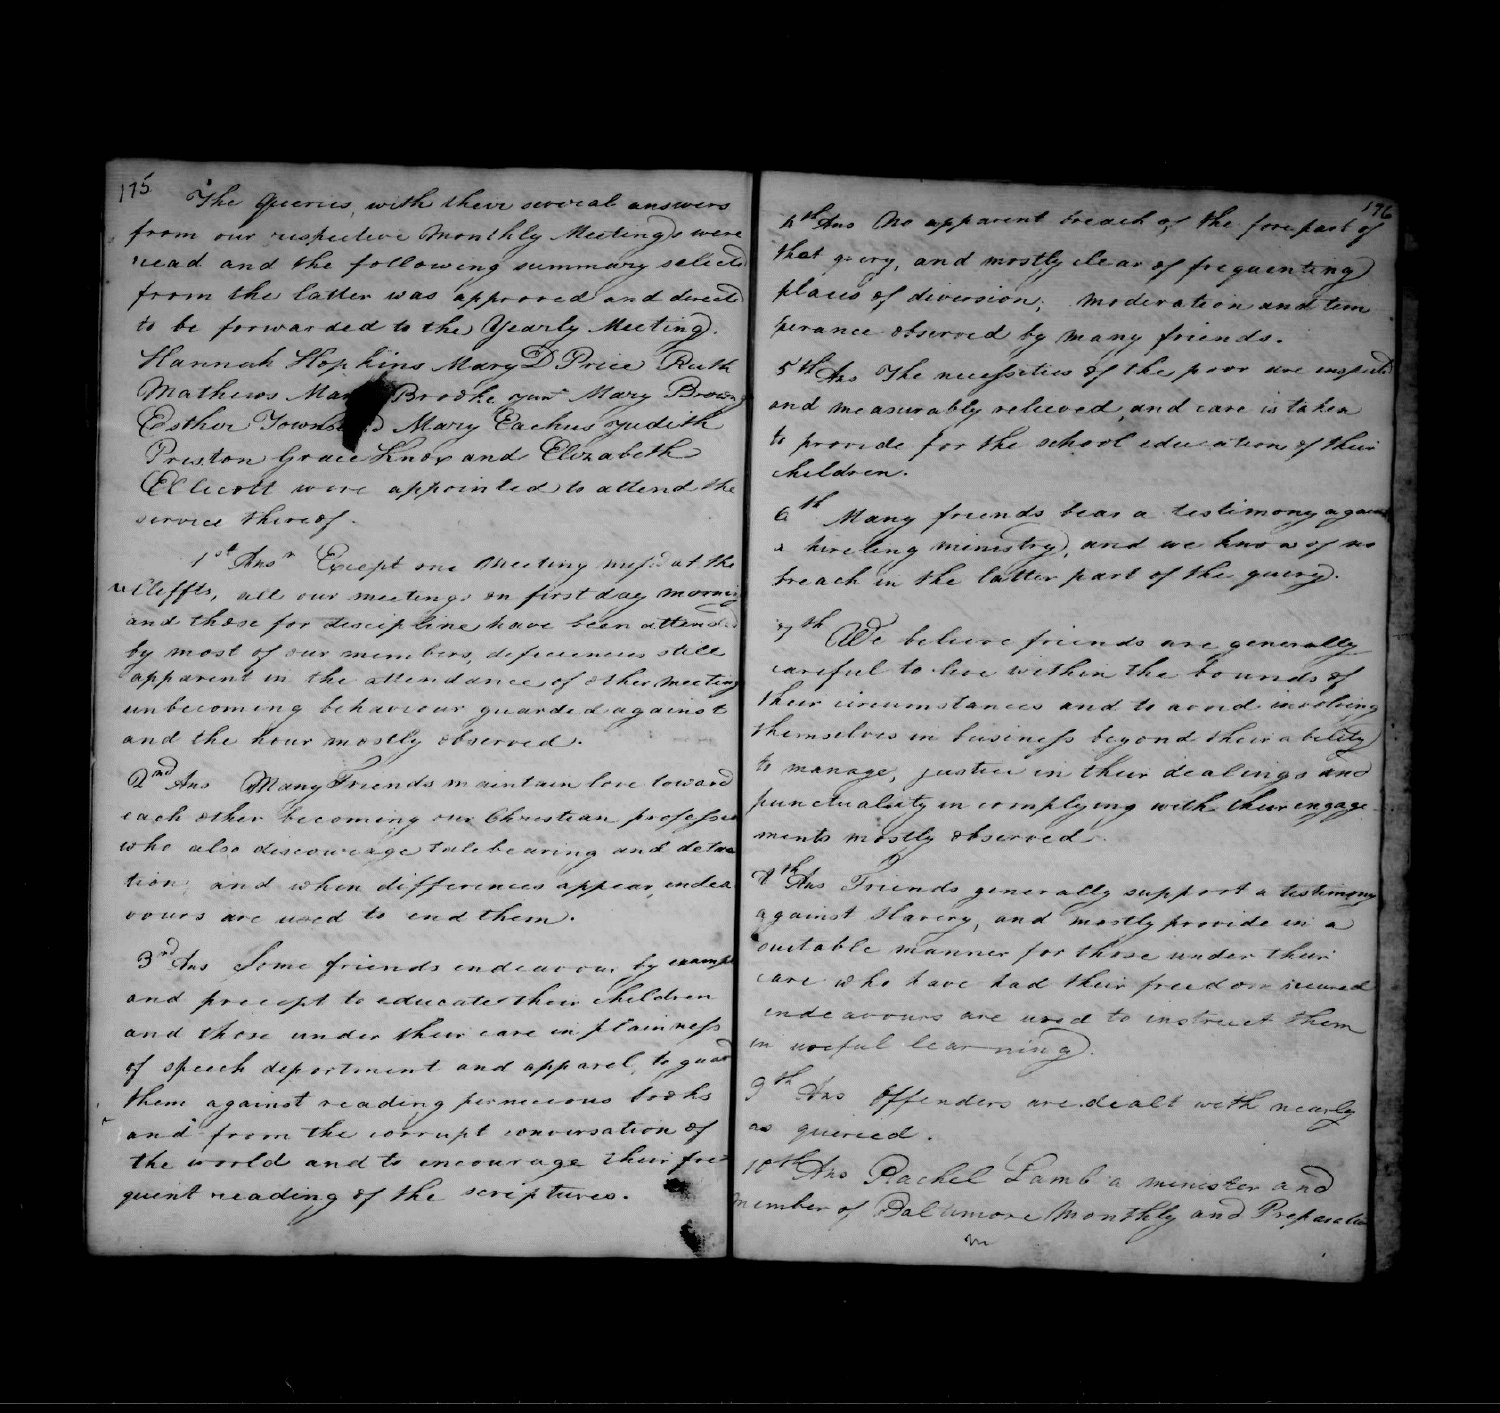 175
The Queries, with their several answers
from our respective Monthly Meetings were
read and the following summary selected
from the latter was approved and directed
to be forwarded to the Yearly Meeting.
Hannah Hopkins Mary D Price Ruth
Mathews Mary Brooke junr Mary Brown
Esther Townsend Mary Eachus Judith
Preston Grace Knox and Elizabeth
Ellicott were appointed to attend the
service thereof.
1st Ansr Except one Meeting miss'd at the
Cliffts, all our meetings on first day morning
and those for discipline have been attended
by most of our members, deficiencies still
apparent in the attendance of other meetings
unbecoming behaviour guarded against
and the hour mostly observed.
2nd Ans Many Friends maintain love toward
each other becoming our Christian profession
who also discourage talebearing and detrac
tion, and when differences appear, endea
vours are used to end them.
3rd Ans Some friends endeavour by example
and precept to educate their children
and those under their care in plainness
of speech deportment and apparel, to guard
them against reading pernicious books
and from the corrupt conversation of
the world and to encourage their fre
quent reading of the scriptures.
176
4th Ans No apparent breach of the forepart of
that query, and mostly clear of frequenting
places of diversion; moderation and tem
perance observed by many friends.
5th Ans The necessities of the poor are inspected
and measurably relieved, and care is taken
to provide for the school education of their
children.
6th Many friends bear a testimony against
a hireling ministry, and we know of no
breach in the latter part of the query.
7th We believe friends are generally
careful to live within the bounds of
their circumstances and to avoid involving
themselves in business beyond their ability
to manage, justice in their dealings and
punctuality in complying with their engage
ments mostly observed.
8th Ans Friends generally support a testimony
against slavery, and mostly provide in a
suitable manner for those under their
care who have had their freedom secured
endeavours are used to instruct them
in useful learning.
9th Ans Offenders are dealt with nearly
as queried.
10th Ans Rachel Lamb a minister and
member of Baltimore Monthly and Preparative